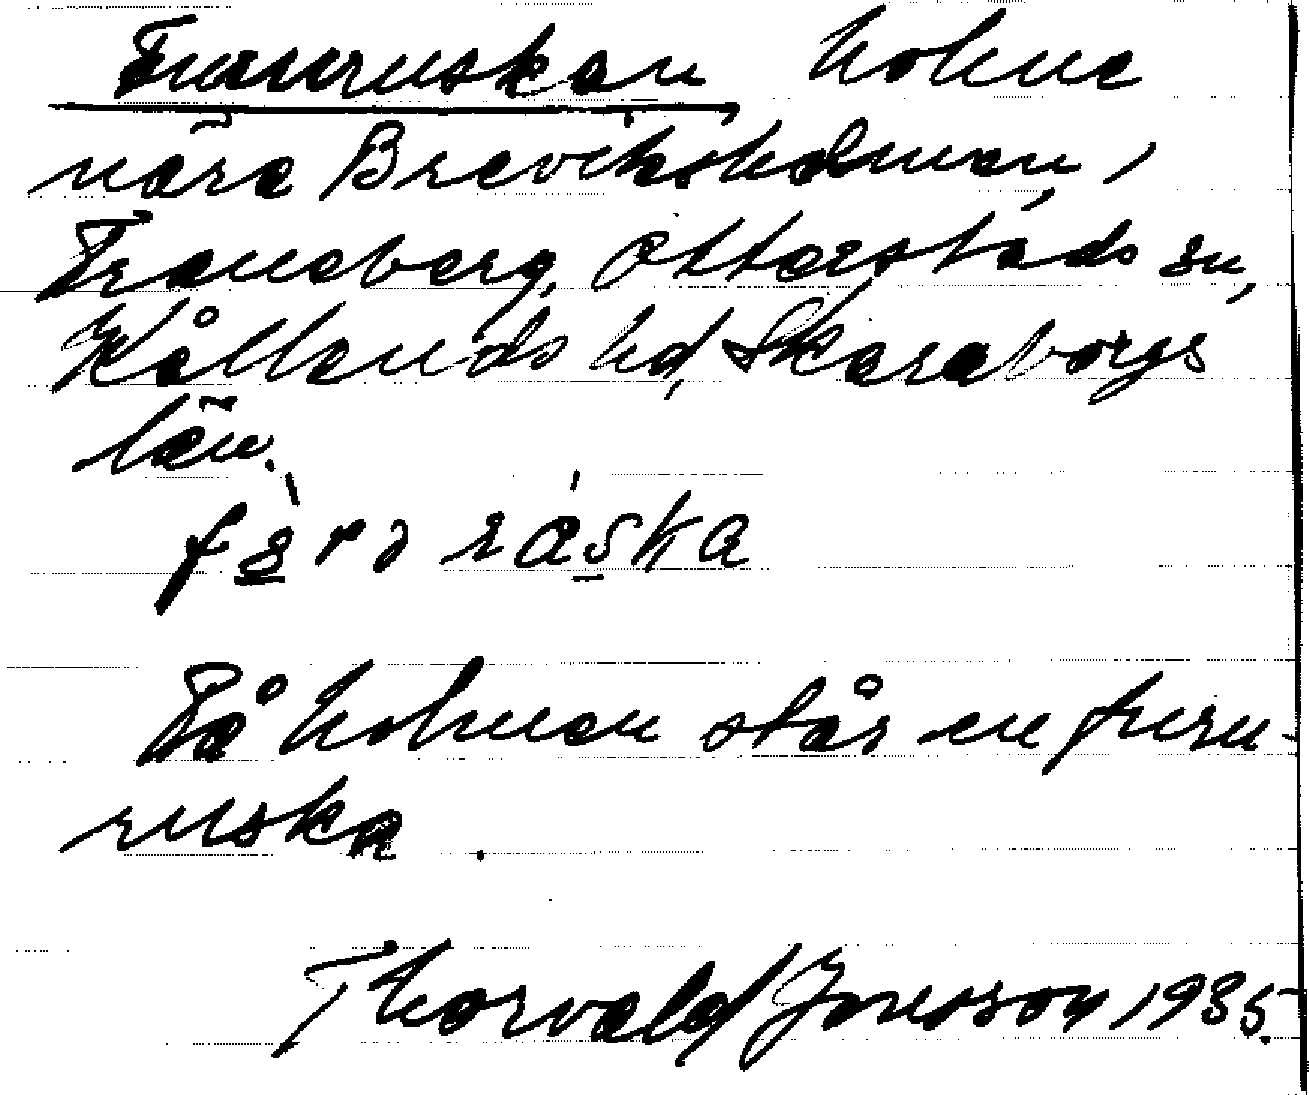 Fururuskan holme
nära Breviksholmen,
Traneberg, Otterstads sn,
Kållands hd, Skaraborgs
län.
På holmen står en furu-
ruska.
Thorvald Jonsson 1935.